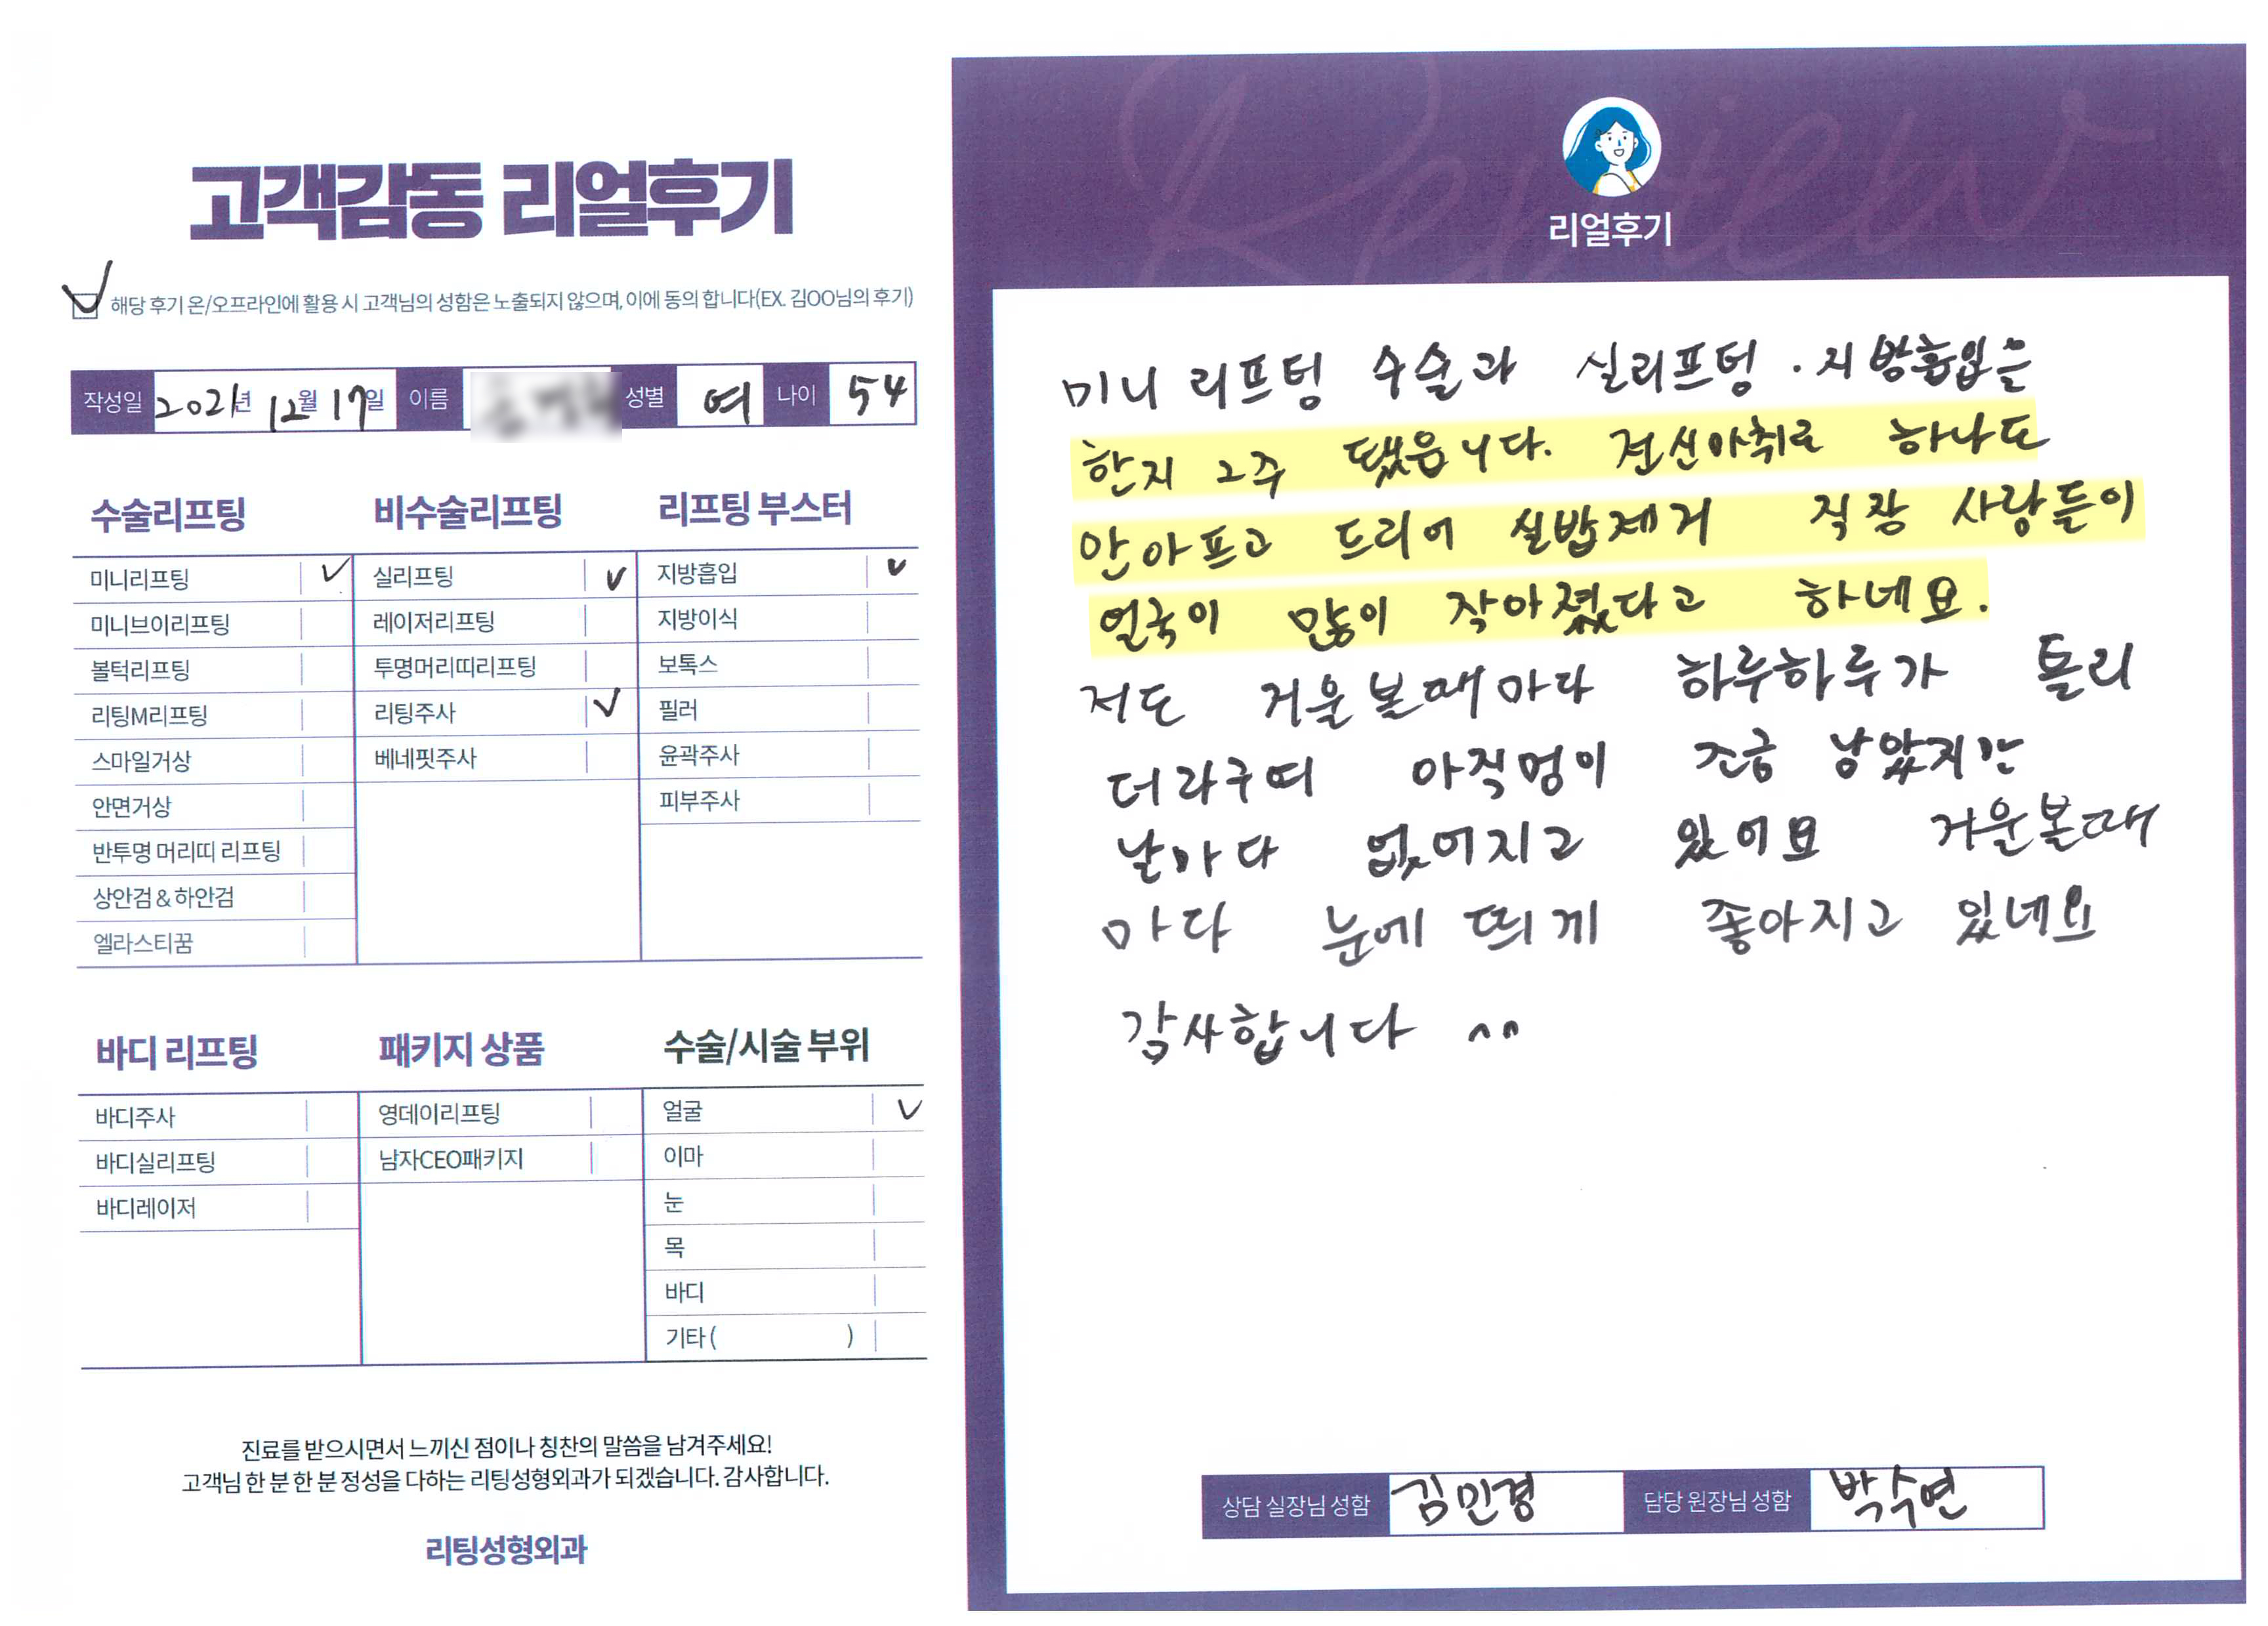 고객감동 리얼후기
해당 후기 온/오프라인에 활용 시 고객님의 성함은 노출되지 않으며, 이에 동의 합니다(EX. 김OO님의 후기)
작성일 2021년 12월 17일 이름 성별 여 나이 54
수술리프팅
미니리프팅 ✓
미니브이리프팅
볼턱리프팅
리팅M리프팅
스마일거상
안면거상
반투명 머리띠 리프팅
상안검 & 하안검
엘라스티꿈
비수술리프팅
실리프팅 ✓
레이저리프팅
투명머리띠리프팅
리팅주사 ✓
베네핏주사
리프팅 부스터
지방흡입 ✓
지방이식
보톡스
필러
윤곽주사
피부주사
바디 리프팅
바디주사
바디실리프팅
바디레이저
패키지 상품
영데이리프팅
남자CEO패키지
수술/시술 부위
얼굴 ✓
이마
눈
목
바디
기타 ( )
진료를 받으시면서 느끼신 점이나 칭찬의 말씀을 남겨주세요!
고객님 한 분 한 분 정성을 다하는 리팅성형외과가 되겠습니다. 감사합니다.
리팅성형외과
Review
리얼후기
미니 리프팅 수술과 실리프텅 . 지방흡입을
한지 2주 됐읍니다. 전신마취로 하나도
안아프고 드리어 실밥제거 직장 사람들이
얼국이 많이 작아졌다고 하네요.
저도 거울볼때마다 하루하루가 틀리
더라구여 아직멍이 조금 남았지만
날마다 없어지고 있어요 거울볼때
마다 눈에 띄게 좋아지고 있네요
감사합니다 ^^
상담 실장님 성함 김민경 담당 원장님 성함 박수연